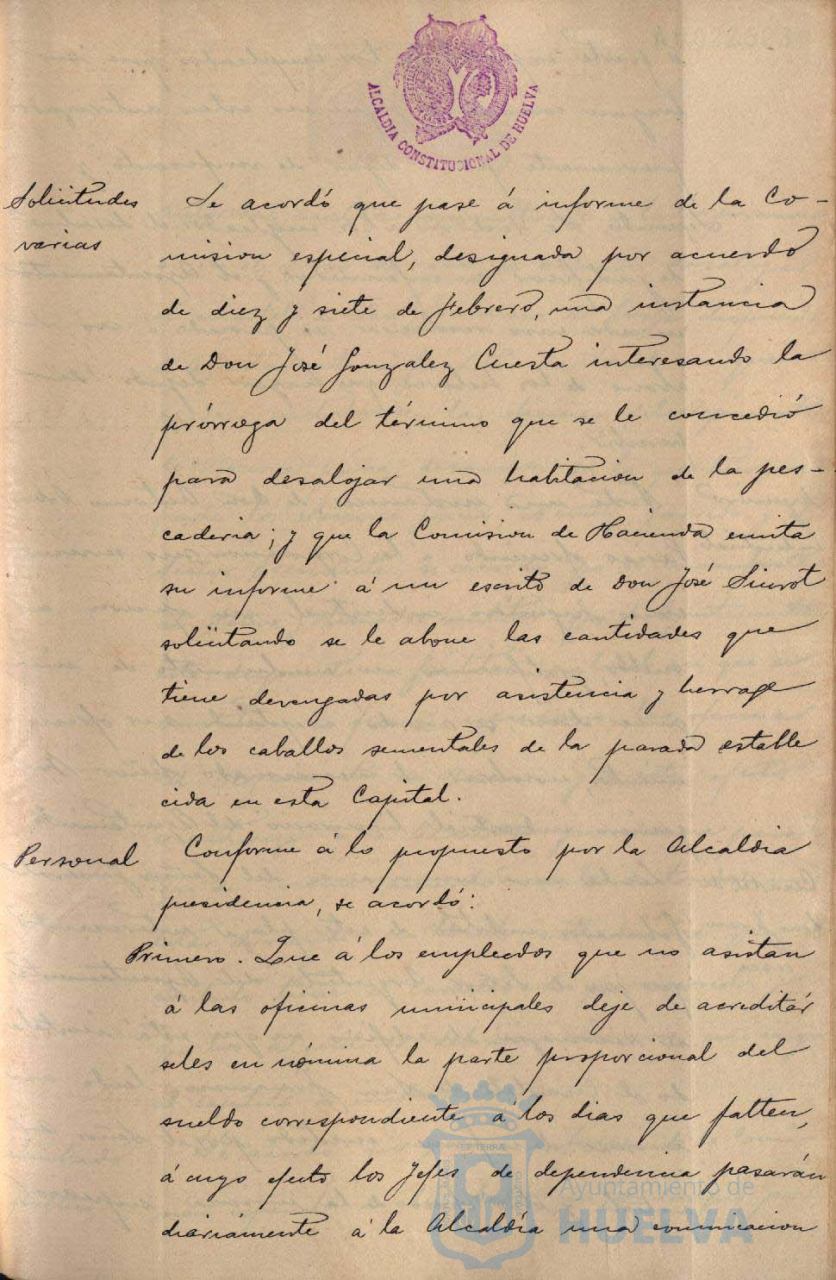 ALCALDIA CONSTITUCIONAL DE HUELVA
Solicitudes
varias
Se acordó que pase á informe de la Co-
mision especial, designada por acuerdo
de diez y siete de Febrero, una instancia
de Don José Gonzalez Cuesta interesando la
prórroga del término que se le concedió
para desalojar una habitacion de la pes-
caderia; y que la Comision de Hacienda emita
su informe á un escrito de Don José Siurot
solicitando se le abone las cantidades que
tiene devengadas por asistencia y herrage
de los caballos sementales de la parada estable
cida en esta Capital.
Personal
Conforme á lo propuesto por la Alcaldia
presidencia, se acordó:
Primero. Que á los empleados que no asistan
á las oficinas municipales deje de acreditár
seles en nómina la parte proporcional del
sueldo correspondiente á los dias que falten,
á cuyo efecto los Jefes de dependencia pasarán
diariamente á la Alcaldía una comunicacion
Ayuntamiento de
HUELVA